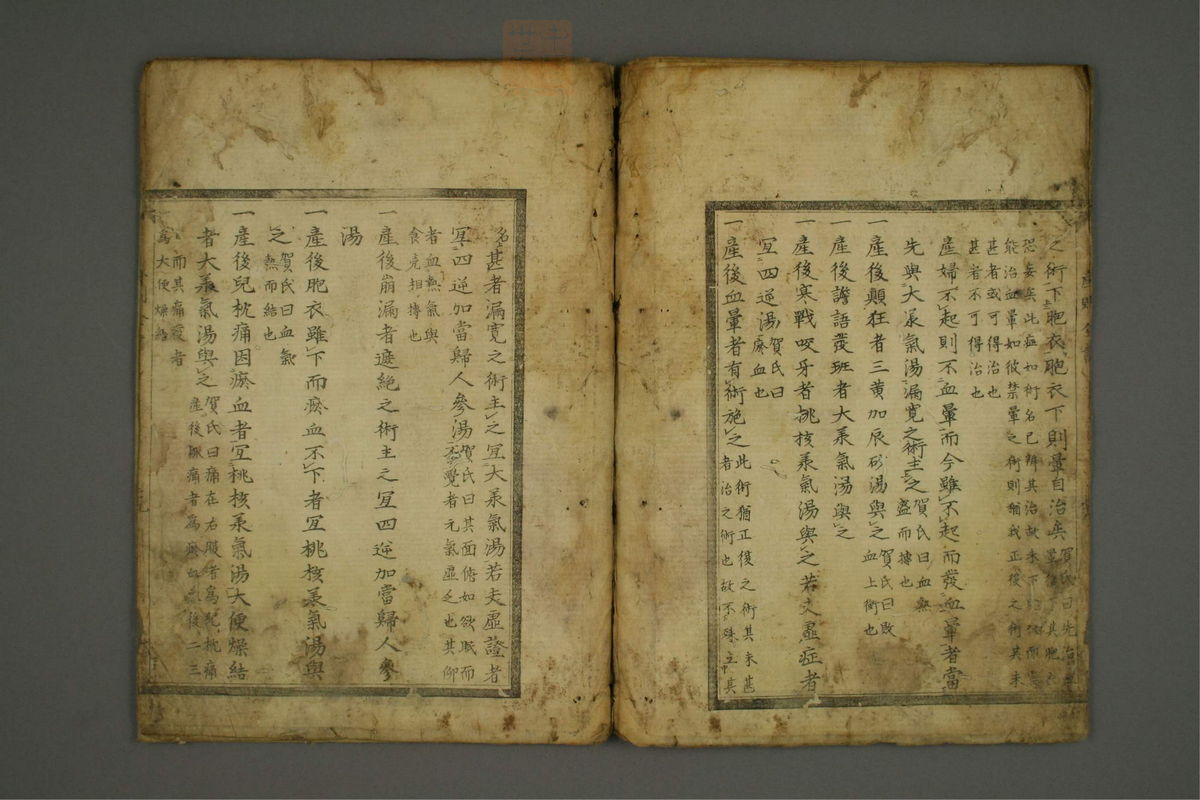 之術下胞衣胞衣下則暈自治矣賀氏曰先治
恐妄矣此症如術名已辨其治故未下
能治血暈如彼禁暈之術則猶我正後之術其未
甚者或可得治也
甚者不可得治也
産婦不起則不血暈而今雖不起而發血暈者當
先與大承氣湯漏寛之術主之賀氏曰血無
盛而據也
一産後顛狂者三黄加辰砂湯與之賀氏曰敗
血上衝也
一産後譫語發班者大承氣湯與之
一産後寒戰咬牙者桃核承氣湯與之若夫虛症者
宜四逆湯賀氏曰
瘀血也
一産後血暈者有術施之此術猶正後之術其未甚
者治之術也故不殊立其
名甚者漏寛之術主之宜大承氣湯若夫虛證者
宜四逆加當歸人參湯賀氏曰其面俯如欲眠而
不覺者元氣虛乏也其仰
者血熱氣與
食壳相摶也
一産後崩漏者遮絶之術主之宜四逆加當歸人參
湯
一産後胞衣雖下而瘀血不下者宜桃核承氣湯與
之賀氏曰血氣
熱而結也
一産後兒枕痛因瘀血者宜桃核承氣湯大便燥結
者大承氣湯與之賀氏曰痛在右股者為兒枕痛
産後腹痛者為瘀血産後二三
而其痛覆者
為大便燥結